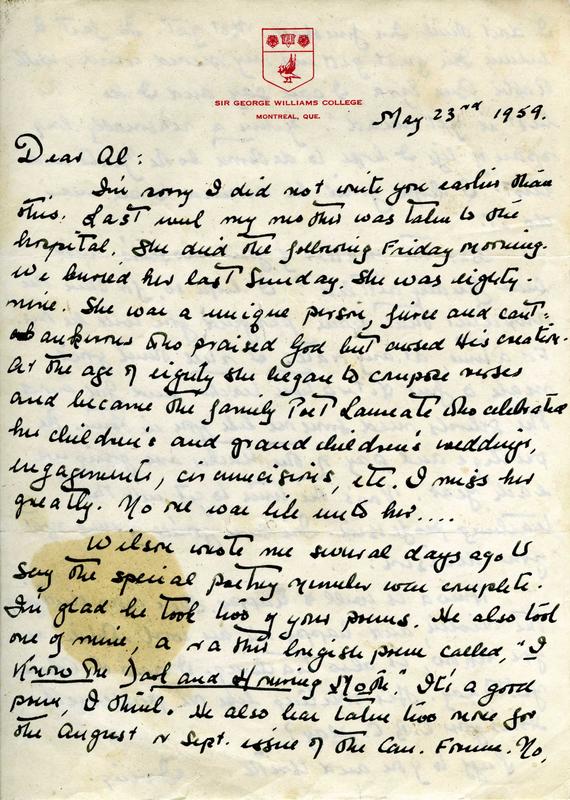 SIR GEORGE WILLIAMS COLLEGE
MONTREAL, QUE.
May 23rd 1959.
Dear Al:
I'm sorry I did not write you earlier than
this. Last week my mother was taken to the
hospital. She died the following Friday morning.
We buried her last Sunday. She was eighty-
nine. She was a unique person, fierce and cant-
ankerous who praised God but cursed His creation.
At the age of eighty she began to compose verses
and became the family Poet Laureate who celebrated
her children's and grandchildren's weddings,
engagements, circumcisions, etc. I miss her
greatly. No one was like unto her....
Wilson wrote me several days ago to
say the special poetry number was complete.
I'm glad he took two of your poems. He also took
one of mine, a rather longish poem called, "I
Know the Dark and Hovering Moth." It's a good
poem, I think. He also has taken two more for
the August or Sept. issue of the Can. Forum. No,